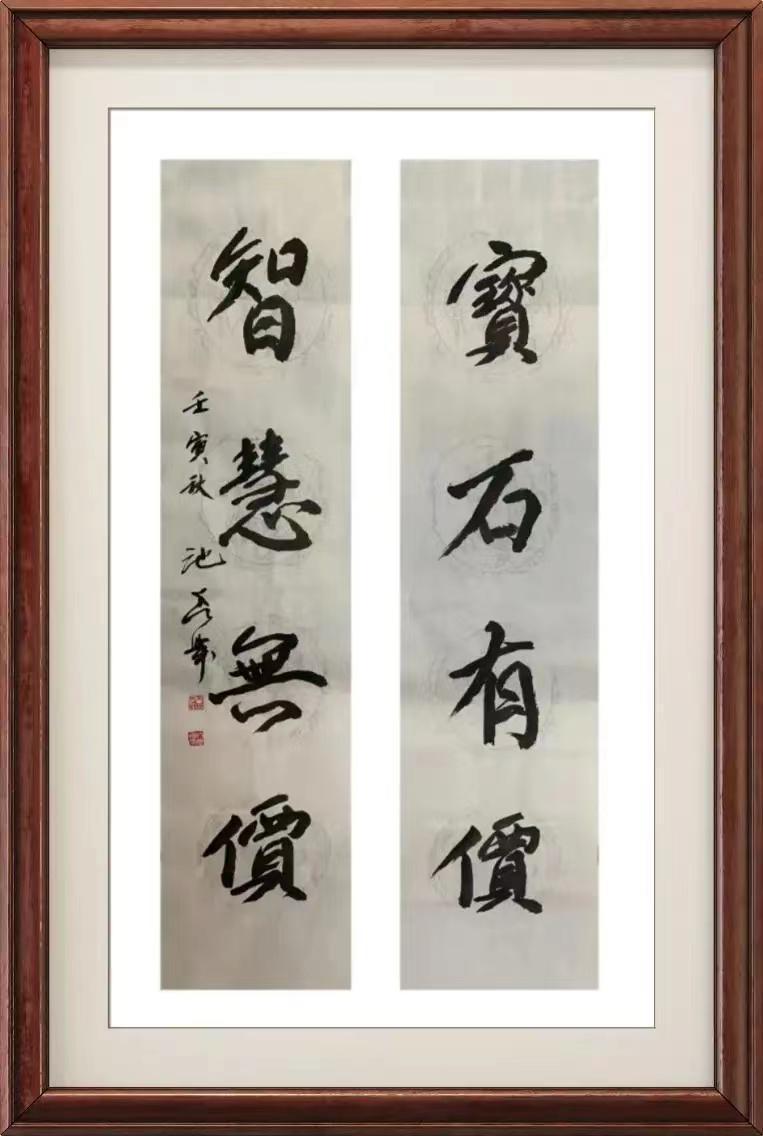 寶石有價
智慧無價
壬寅秋 池